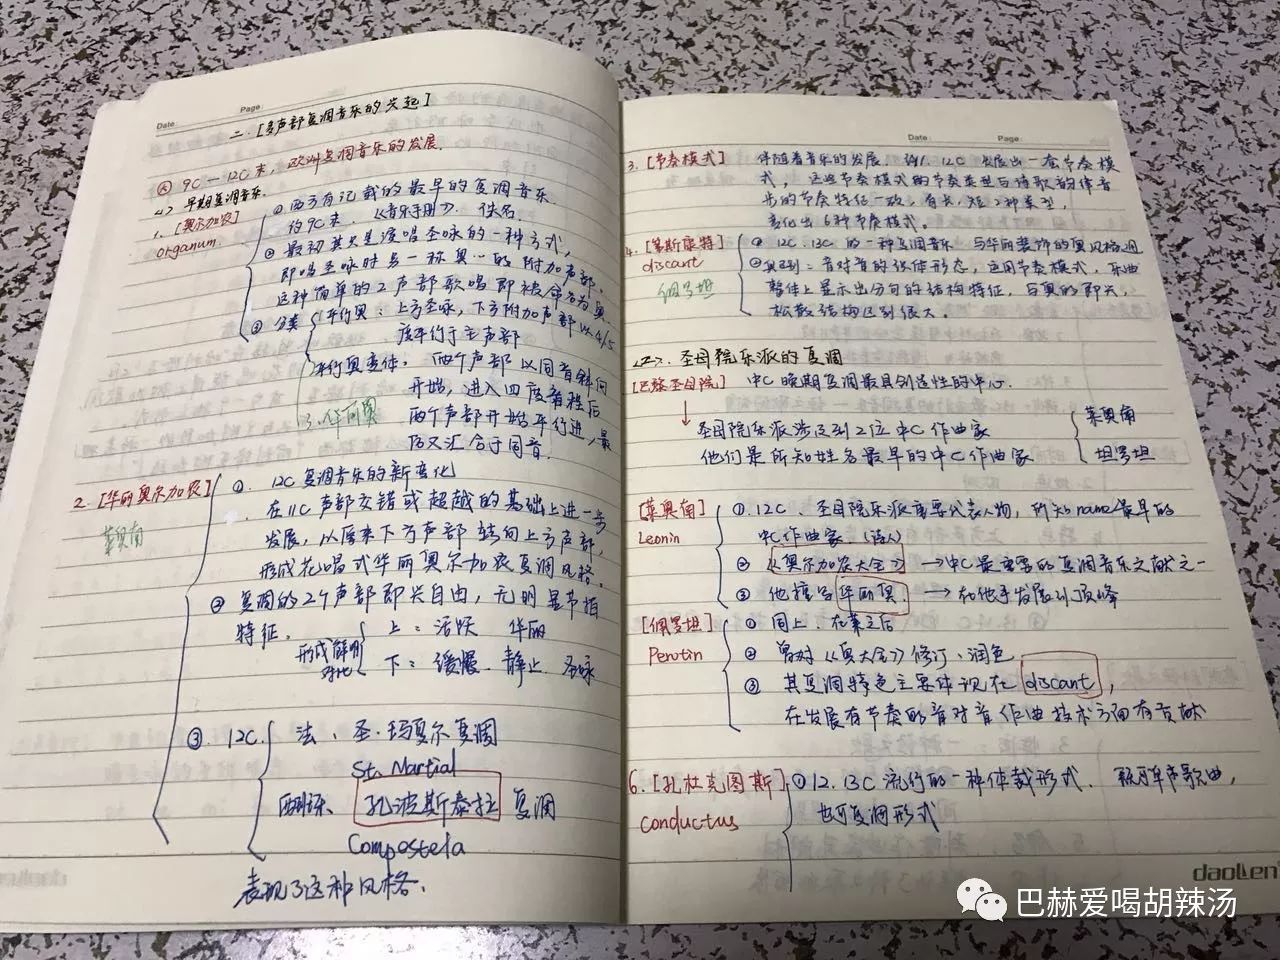 Date: Page:
二.[多声部复调音乐的兴起]
㊅ 9C—12C末,欧洲复调音乐的发展.
<1> 早期复调音乐.
1. [奥尔加农]
organum.
① 西方有记载的最早的复调音乐.
约9C末.《音乐手册》. 佚名.
② 最初其只是演唱圣咏的一种方式,
即唱圣咏时另一称奥…的附加声部.
这种简单的2声部歌唱即被命名为奥
③ 分类
平行奥:上方圣咏,下方附加声部以4/5
度平行于主声部
平行奥变体:两个声部以同音斜向
开始,进入四度音程后
两个声部开始平行进,最
后又汇合于同音.
3. 华丽奥
2. [华丽奥尔加农]
莱奥南
①. 12C复调音乐的新变化
在11C声部交错或超越的基础上进一步
发展,从原来下方声部转向上方声部,
形成花唱式华丽奥尔加农复调风格.
② 复调的2个声部即兴自由,无明显节拍
特征.
形成鲜明
对比
上:活跃 华丽
下:缓慢.静止.圣咏
③. 12C.
法.圣·玛夏尔复调
St. Martial
西班牙. 孔波斯泰拉 复调
Compostela
表现了这种风格.
Date: Page:
3. [节奏模式]
伴随着音乐的发展. 12C 发展出一套节奏模
式,这些节奏模式的节奏类型与诗歌韵律音
步的节奏特征一致,有长,短2种类型,
变化出6种节奏模式.
4. [第斯康特]
discant
佩罗坦
① 12C.13C的一种复调音乐 与华丽装饰的奥风格
② 区别:音对音的织体形态,运用节奏模式,乐曲
整体上显示出分句的结构特征,与奥的即兴,
松散结构区别很大.
<二>. 圣母院乐派的复调
[巴黎圣母院] 中C晚期复调最具创造性的中心.
圣母院乐派涉及到2位中C作曲家
他们是所知姓名最早的中C作曲家
莱奥南
坦罗坦
[莱奥南]
Leonin
①. 12C 圣母院乐派重要代表人物,所知name最早的
中C作曲家.(诗人)
② 《奥尔加农大全》→中C最重要的复调音乐文献之一
③ 他擅写华丽奥. →在他手发展到顶峰
[佩罗坦]
Perotin
① 同上:在莱之后
② 曾对《奥大全》修订、润色
③ 其复调特色主要体现在discant,
在发展有节奏的音对音作曲技术方面有贡献
6. [孔杜克图斯]
conductus
① 12.13C流行的一种体裁形式. 既可单声歌曲,
也可复调形式
daolen
巴赫爱喝胡辣汤